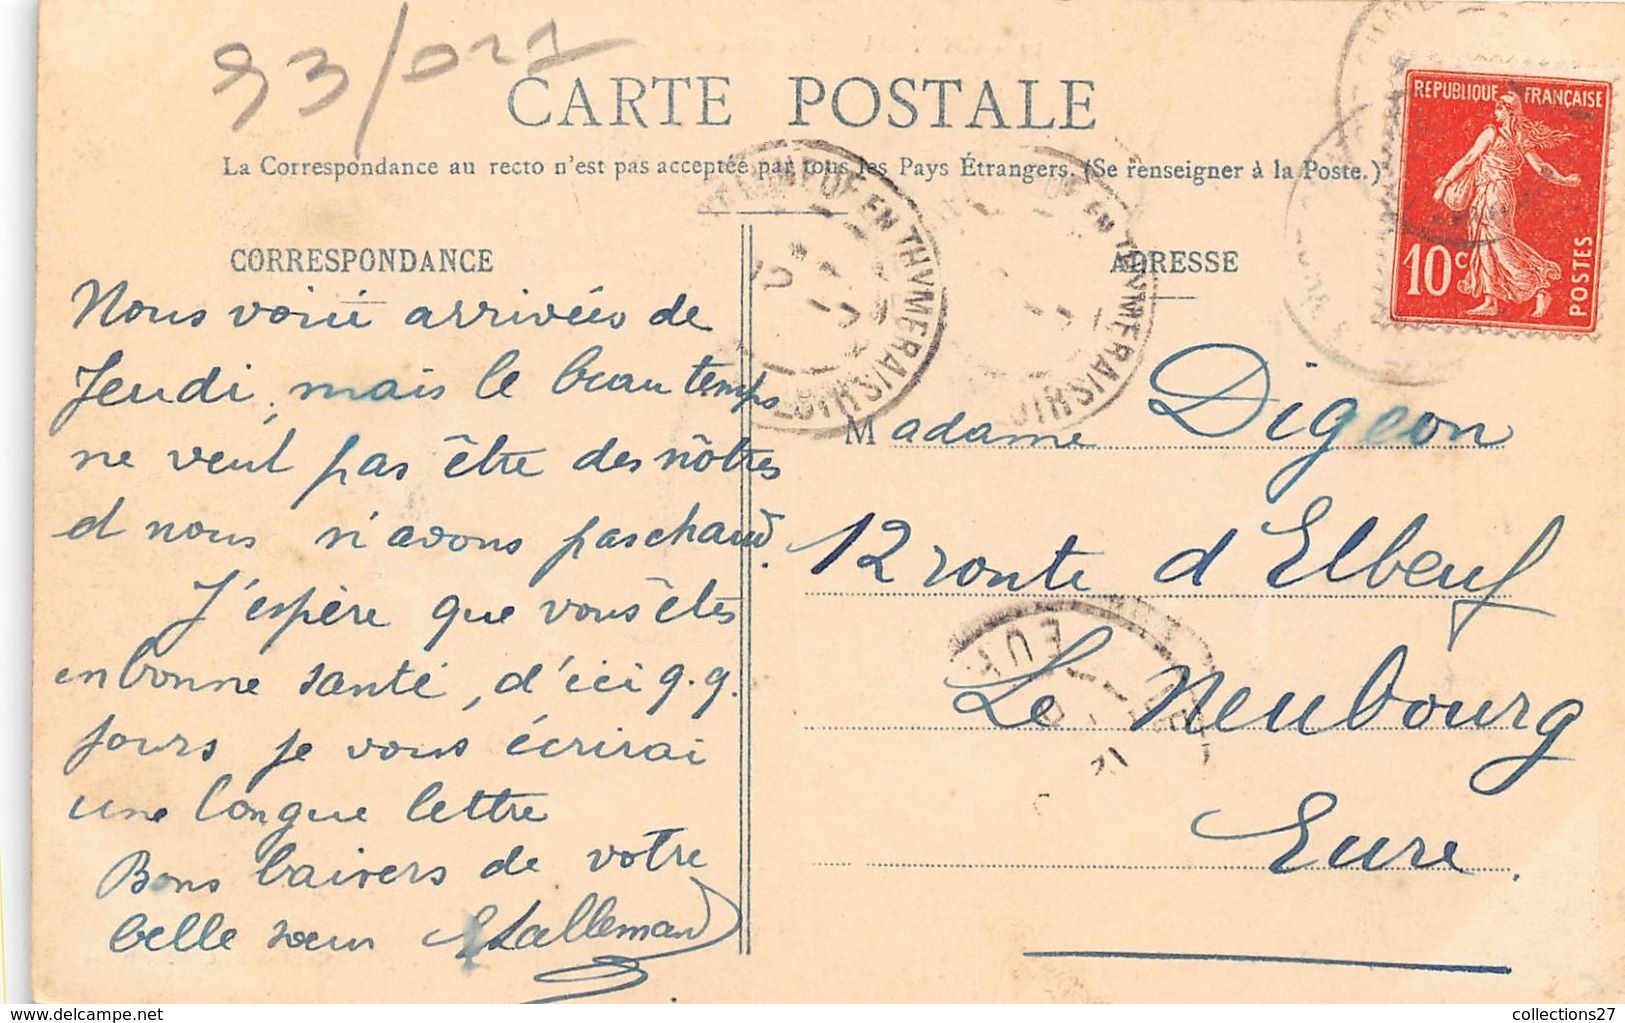 93/021
CARTE POSTALE
La Correspondance au recto n'est pas acceptée par tous les Pays Étrangers. (Se renseigner à la Poste.)
REPUBLIQUE FRANÇAISE
10c
POSTES
CORRESPONDANCE
Nous voici arrivées de
Jeudi, mais le beau temps
ne veut pas être des nôtres
et nous n'avons pas chaud.
J'espère que vous êtes
en bonne santé, d'ici q.q.
jours je vous écrirai
une longue lettre
Bons baisers de votre
belle sœur Lallemand
ADRESSE
Madame Digeon
12 route d'Elbeuf
Le Neubourg
Eure.
EN THYMERAIS
EN THYMERAIS
EURE
delcampe.net
collections27